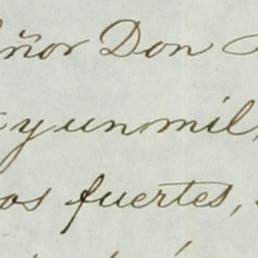 eñor Don
y un mil,
os fuertes,